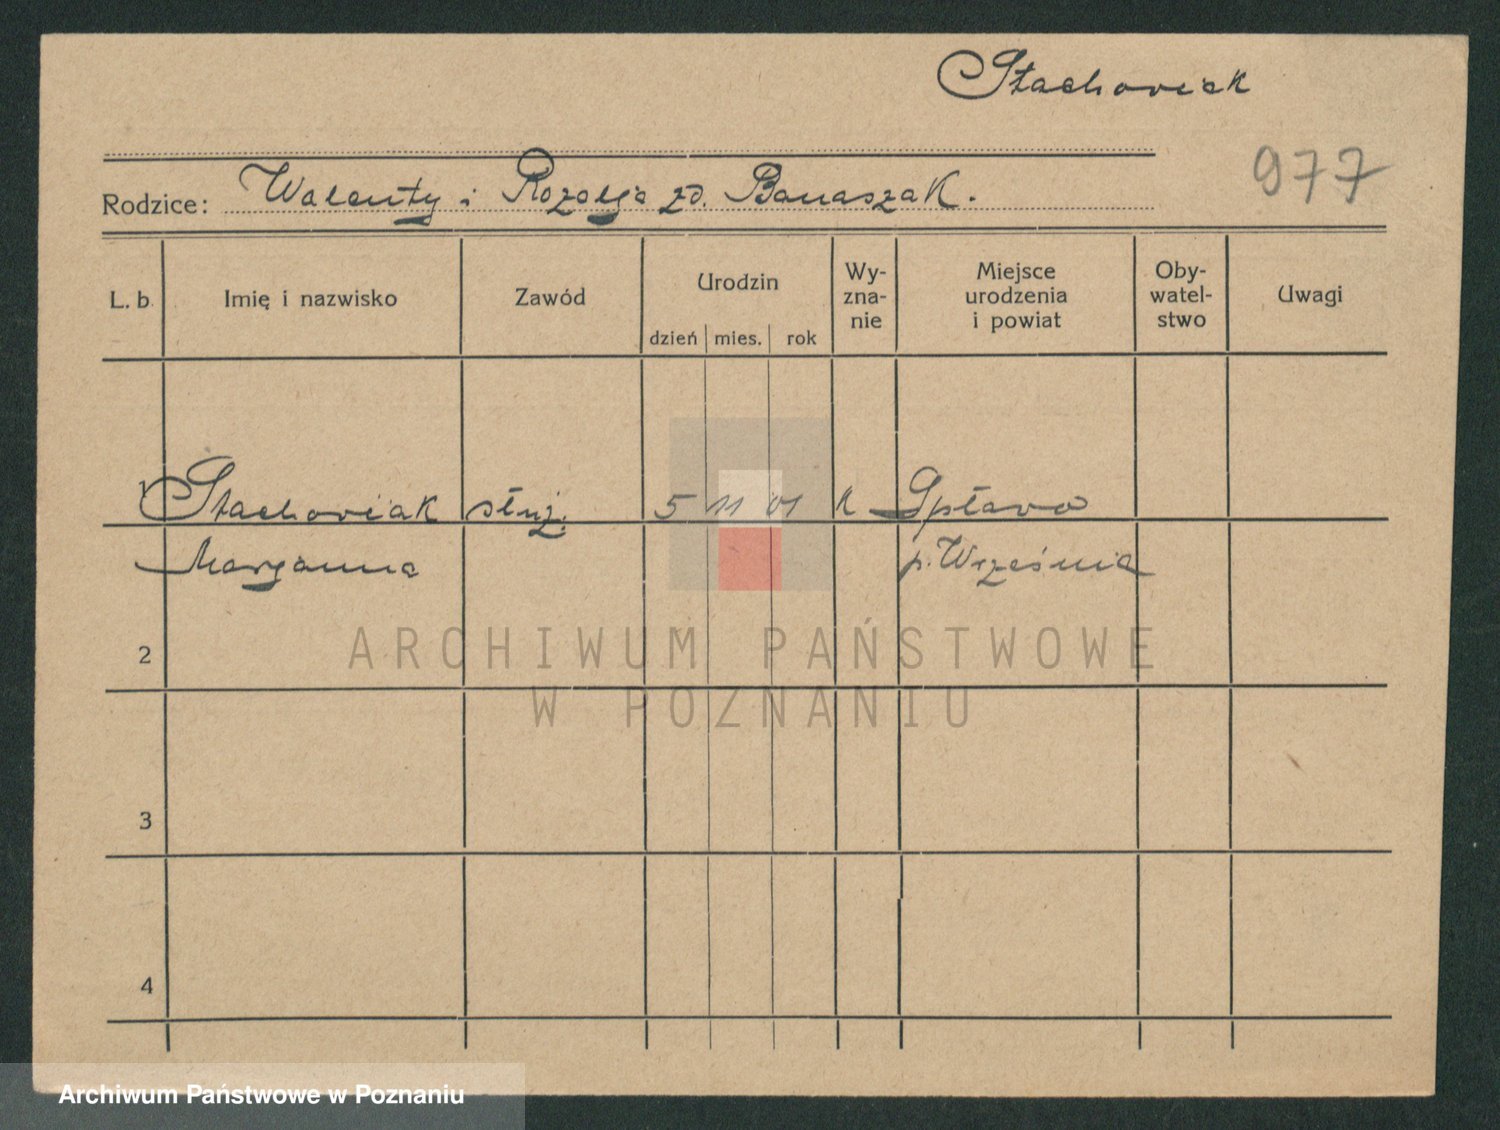 Stachowiak
977
Rodzice: Walenty i Rozalja zd. Banaszak.
L. b. Imię i nazwisko Zawód Urodzin Wy- zna- nie Miejsce urodzenia i powiat Oby- watel- stwo Uwagi
dzień mies. rok
1 Stachowiak służ. 5 11 01 k Spławo
Maryanna p. Września
2
ARCHIWUM PAŃSTWOWE
W POZNANIU
3
4
Archiwum Państwowe w Poznaniu